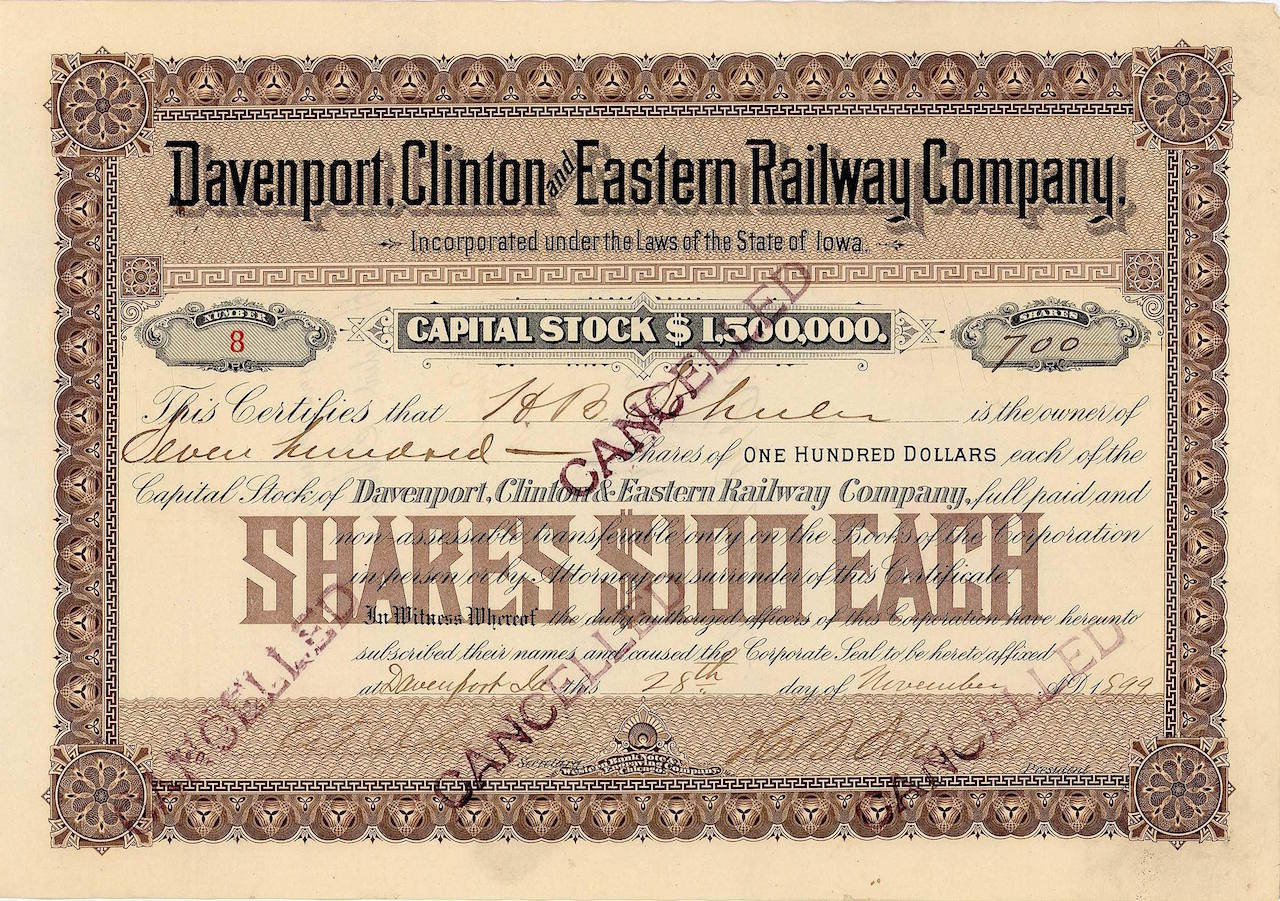 Davenport, Clinton and Eastern Railway Company.
Incorporated under the Laws of the State of Iowa.
NUMBER
8
CAPITAL STOCK $1,500,000.
SHARES
700
This Certifies that H B is the owner of
Seven hundred — Shares of ONE HUNDRED DOLLARS each of the
Capital Stock of Davenport, Clinton & Eastern Railway Company, full paid and
non-assessable transferable only on the Books of the Corporation
in person or by Attorney on surrender of this Certificate.
SHARES $100 EACH
In Witness Whereof the duly authorized officers of this Corporation have hereunto
subscribed their names and caused the Corporate Seal to be hereto affixed
at Davenport Ia this 28th day of November A.D. 1899
Secretary
Western Bank Note & Engraving Company
Chicago
President
CANCELLED
CANCELLED
CANCELLED
CANCELLED